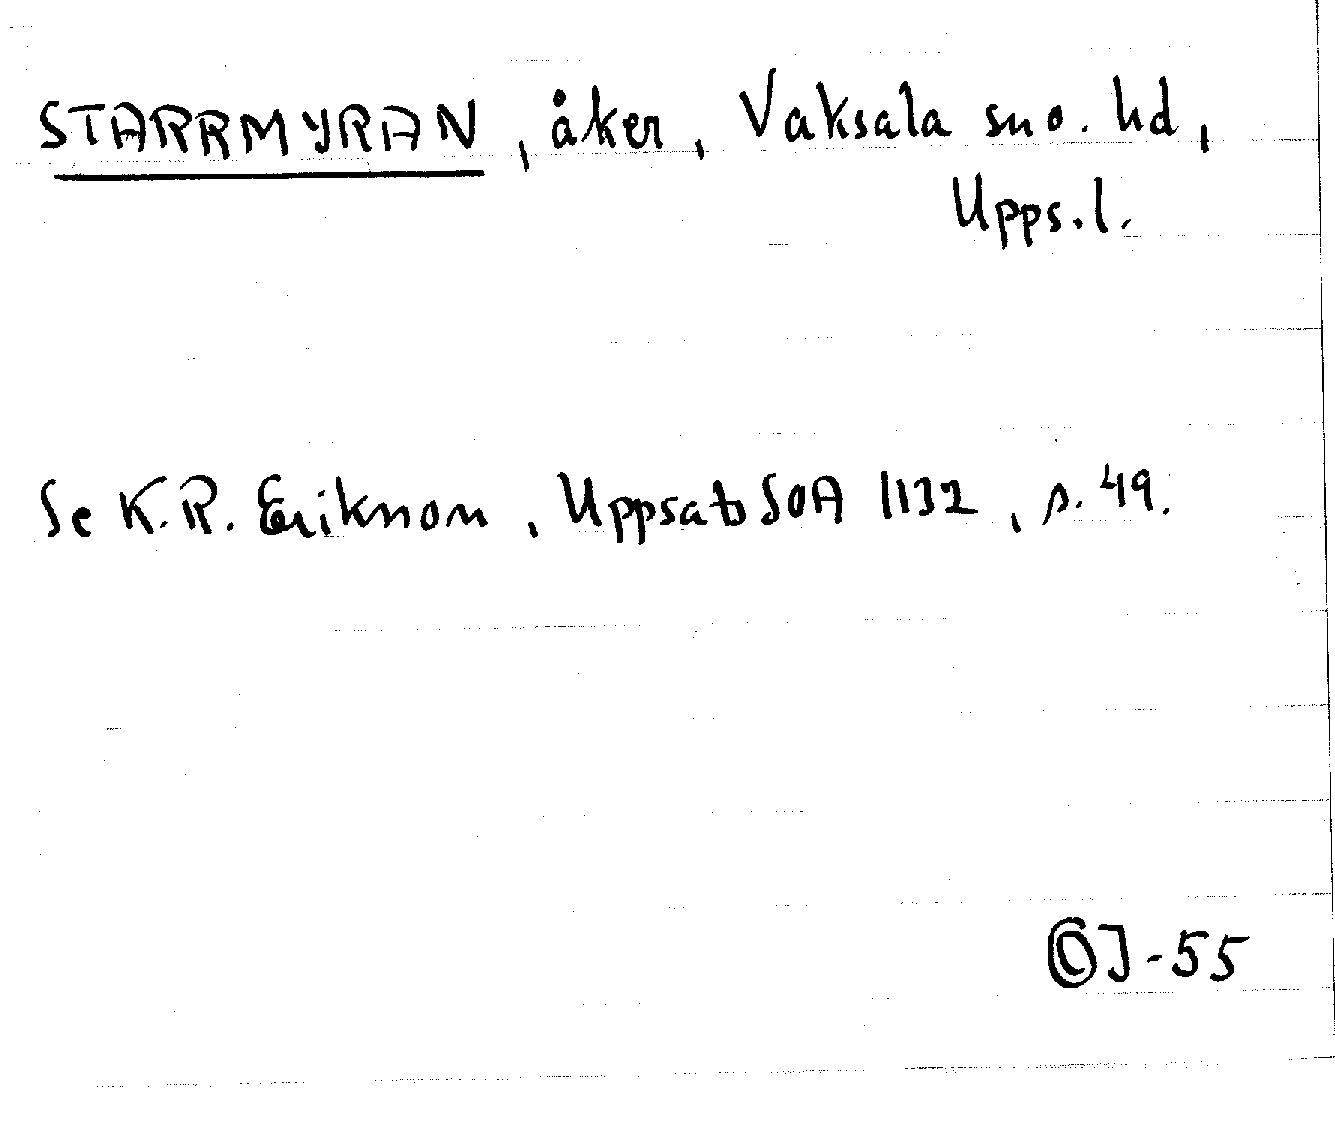 STARRMYRAN, åker, Vaksala sn o. hd,
Upps.l.
Se K.R. Erikson, Uppsats SOA 1132, s. 49.
J-55